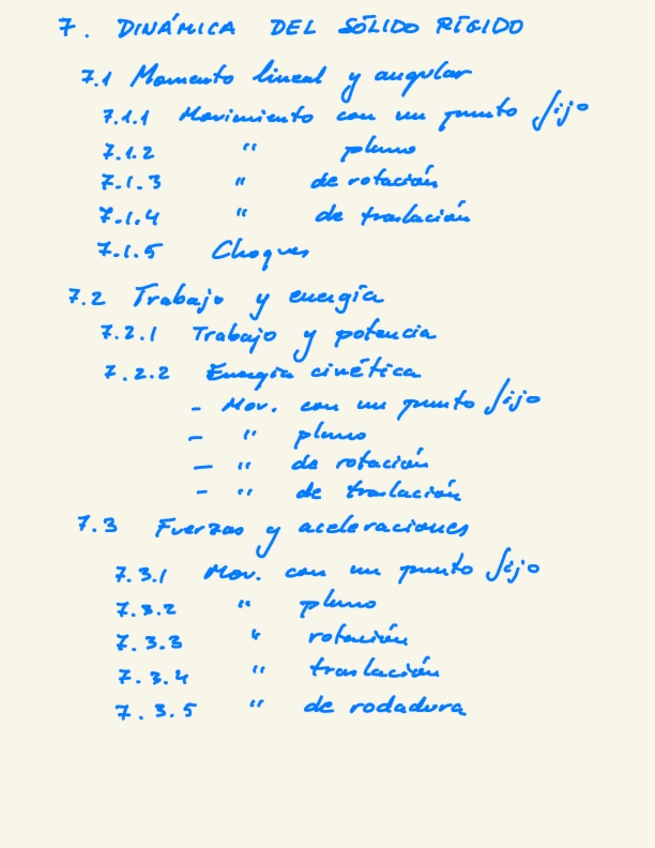 7. DINÁMICA DEL SÓLIDO RÍGIDO
7.1 Momento lineal y angular
7.1.1 Movimiento con un punto fijo
7.1.2 " plano
7.1.3 " de rotación
7.1.4 " de traslación
7.1.5 Choques
7.2 Trabajo y energía
7.2.1 Trabajo y potencia
7.2.2 Energía cinética
- Mov. con un punto fijo
- " plano
- " de rotación
- " de traslación
7.3 Fuerzas y aceleraciones
7.3.1 Mov. con un punto fijo
7.3.2 " plano
7.3.3 " rotación
7.3.4 " traslación
7.3.5 " de rodadura